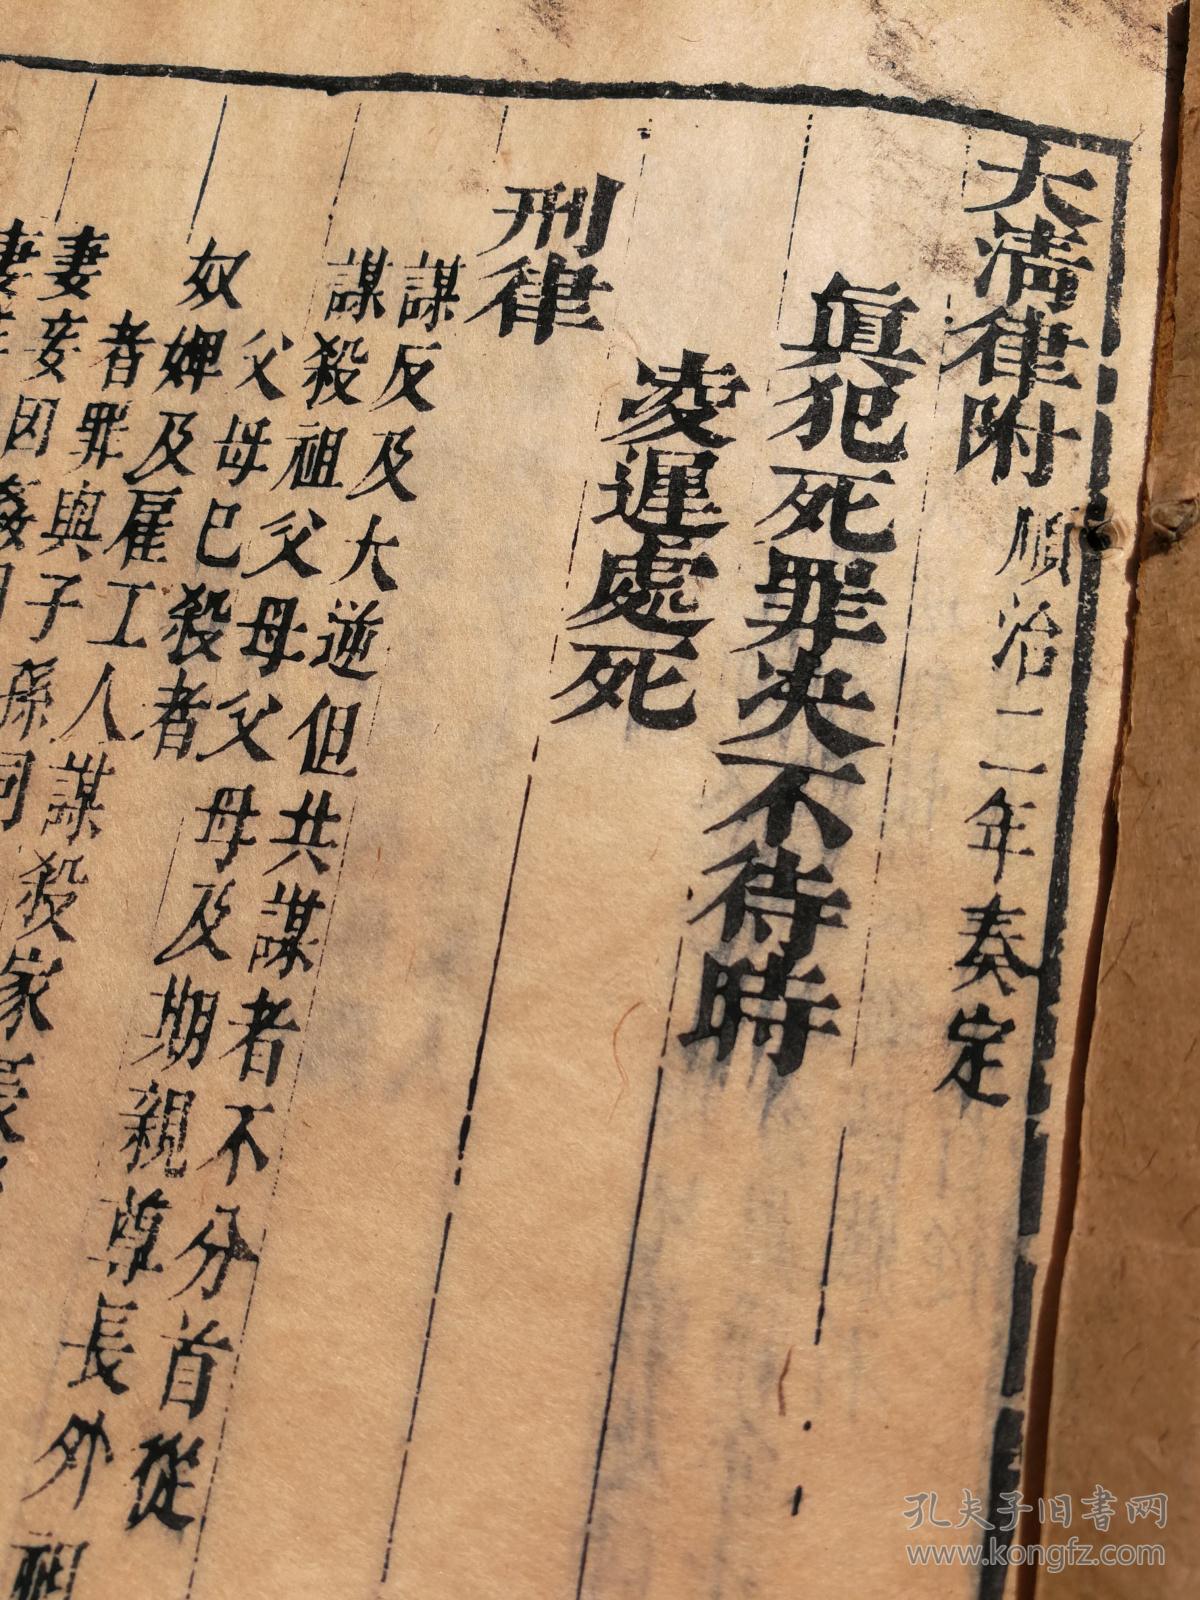 大清律附 順治三年奏定
眞犯死罪决不待時
凌遲處死
刑律
謀反及大逆但共謀者不分首從
謀殺祖父母父母及期親尊長外祖
父母已殺者
奴婢及雇工人謀殺家長
者罪與子孫同
妻妾因姦同
妻
孔夫子旧書网
www.kongfz.com